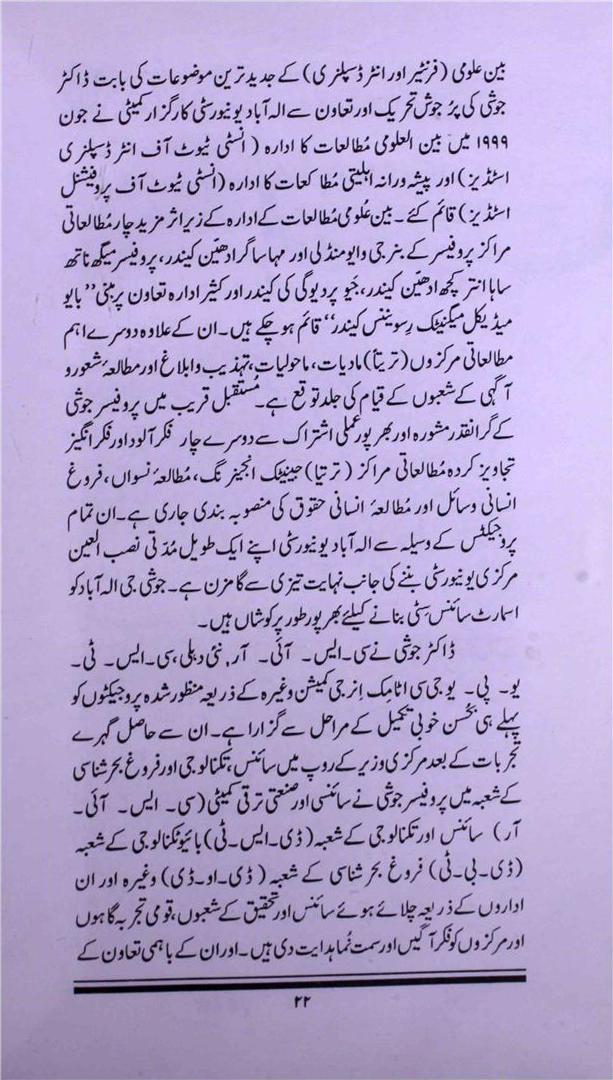 بین علومی (فرنٹیر اور انٹر ڈسپلنری) کے جدید ترین موضوعات کی بابت ڈاکٹر
جوشی کی پُر جوش تحریک اور تعاون سے الہ آباد یونیورسٹی کارگزار کمیٹی نے جون
۱۹۹۹ میں بین العلومی مُطالعات کا ادارہ ( انسٹی ٹیوٹ آف انٹر ڈسپلنری
اسٹڈیز) اور پیشہ ورانہ اہلیتی مُطالعات کا ادارہ (انسٹی ٹیوٹ آف پروفیشنل
اسٹڈیز) قائم کئے۔ بین عُلومی مُطالعات کے ادارہ کے زیر اثر مزید چار مُطالعاتی
مراکز پروفیسر کے بنرجی وایومنڈلی اور مہاساگر ادھیّن کیندر، پروفیسر میگھ ناتھ
ساہا انتر کچھ ادھیّن کیندر، جیو پردیوگی کی کیندر اور کثیر ادارہ تعاون پر مبنی ”بایو
میڈیکل میگنیٹک رسویننس کیندر“ قائم ہو چکے ہیں۔ ان کے علاوہ دوسرے اہم
مطالعاتی مرکزوں (ترتیباً) مادیات، ماحولیات، تہذیب و ابلاغ اور مطالعۂ شعور و
آگہی کے شعبوں کے قیام کی جلد توقع ہے۔ مُستقبل قریب میں پروفیسر جوشی
کے گرانقدر مشورہ اور بھرپور عملی اشتراک سے دوسرے چار فکر آلود اور فکر انگیز
تجاویز کردہ مُطالعاتی مراکز (ترتیبا) جینیٹک انجینرنگ، مطالعۂ نسواں، فروغ
انسانی وسائل اور مُطالعۂ انسانی حقوق کی منصوبہ بندی جاری ہے۔ ان تمام
پروجیکٹس کے وسیلہ سے الہ آباد یونیورسٹی اپنے ایک طویل مُدّتی نصب العین
مرکزی یونیورسٹی بننے کی جانب نہایت تیزی سے گامزن ہے۔ جوشی جی الہ آباد کو
اسمارٹ سائنس سِٹی بنانے کیلئے بھرپور طور پر کوشاں ہیں۔
ڈاکٹر جوشی نے سی۔ ایس۔ آئی۔ آر، نئی دہلی، سی۔ ایس۔ ٹی۔
یو۔ پی۔ یو جی سی اٹامِک اِنرجی کمیشن وغیرہ کے ذریعہ منظور شدہ پروجیکٹوں کو
پہلے ہی بحُسن خوبی تکمیل کے مراحل سے گزارا ہے۔ ان سے حاصل گہرے
تجربات کے بعد مرکزی وزیر کے روپ میں سائنس، تکنالوجی اور فروغ بحر شناسی
کے شعبہ میں پروفیسر جوشی نے سائنسی اور صنعتی ترقی کمیٹی (سی۔ ایس۔ آئی۔
آر) سائنس اور تکنالوجی کے شعبہ (ڈی۔ ایس۔ ٹی) بائیو تکنالوجی کے شعبہ
(ڈی۔ بی۔ ٹی) فروغ بحر شناسی کے شعبہ (ڈی۔ او۔ ڈی) وغیرہ اور ان
اداروں کے ذریعہ چلائے ہوئے سائنس اور تحقیق کے شعبوں، قومی تجربہ گاہوں
اور مرکزوں کو فکر آگیں اور سمت نُما ہدایت دی ہیں۔ اور ان کے باہمی تعاون کے
۲۲